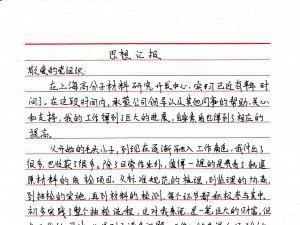 思想汇报
敬爱的党组织:
在上海高分子材料研究开发中心实习已近有半年时
间了。在这段时间内,承蒙公司领导以及其他同事的帮助、关心
和支持,我的工作得到了巨大的进展,自身素质也得到了相应的
提高。
从开始的毛头小子,到现在逐渐融入工作角色,我付出了
很多,也收获了很多。除了日常作业外,值得一提的是负责了
原材料的质检项目。从标准规范的整理,到监理的协商,
到抽检的实施,再到材料的检测,每个环节都积极参与其中,
初步实践了整个抽检流程,这对我来说,是一笔巨大的财富。但